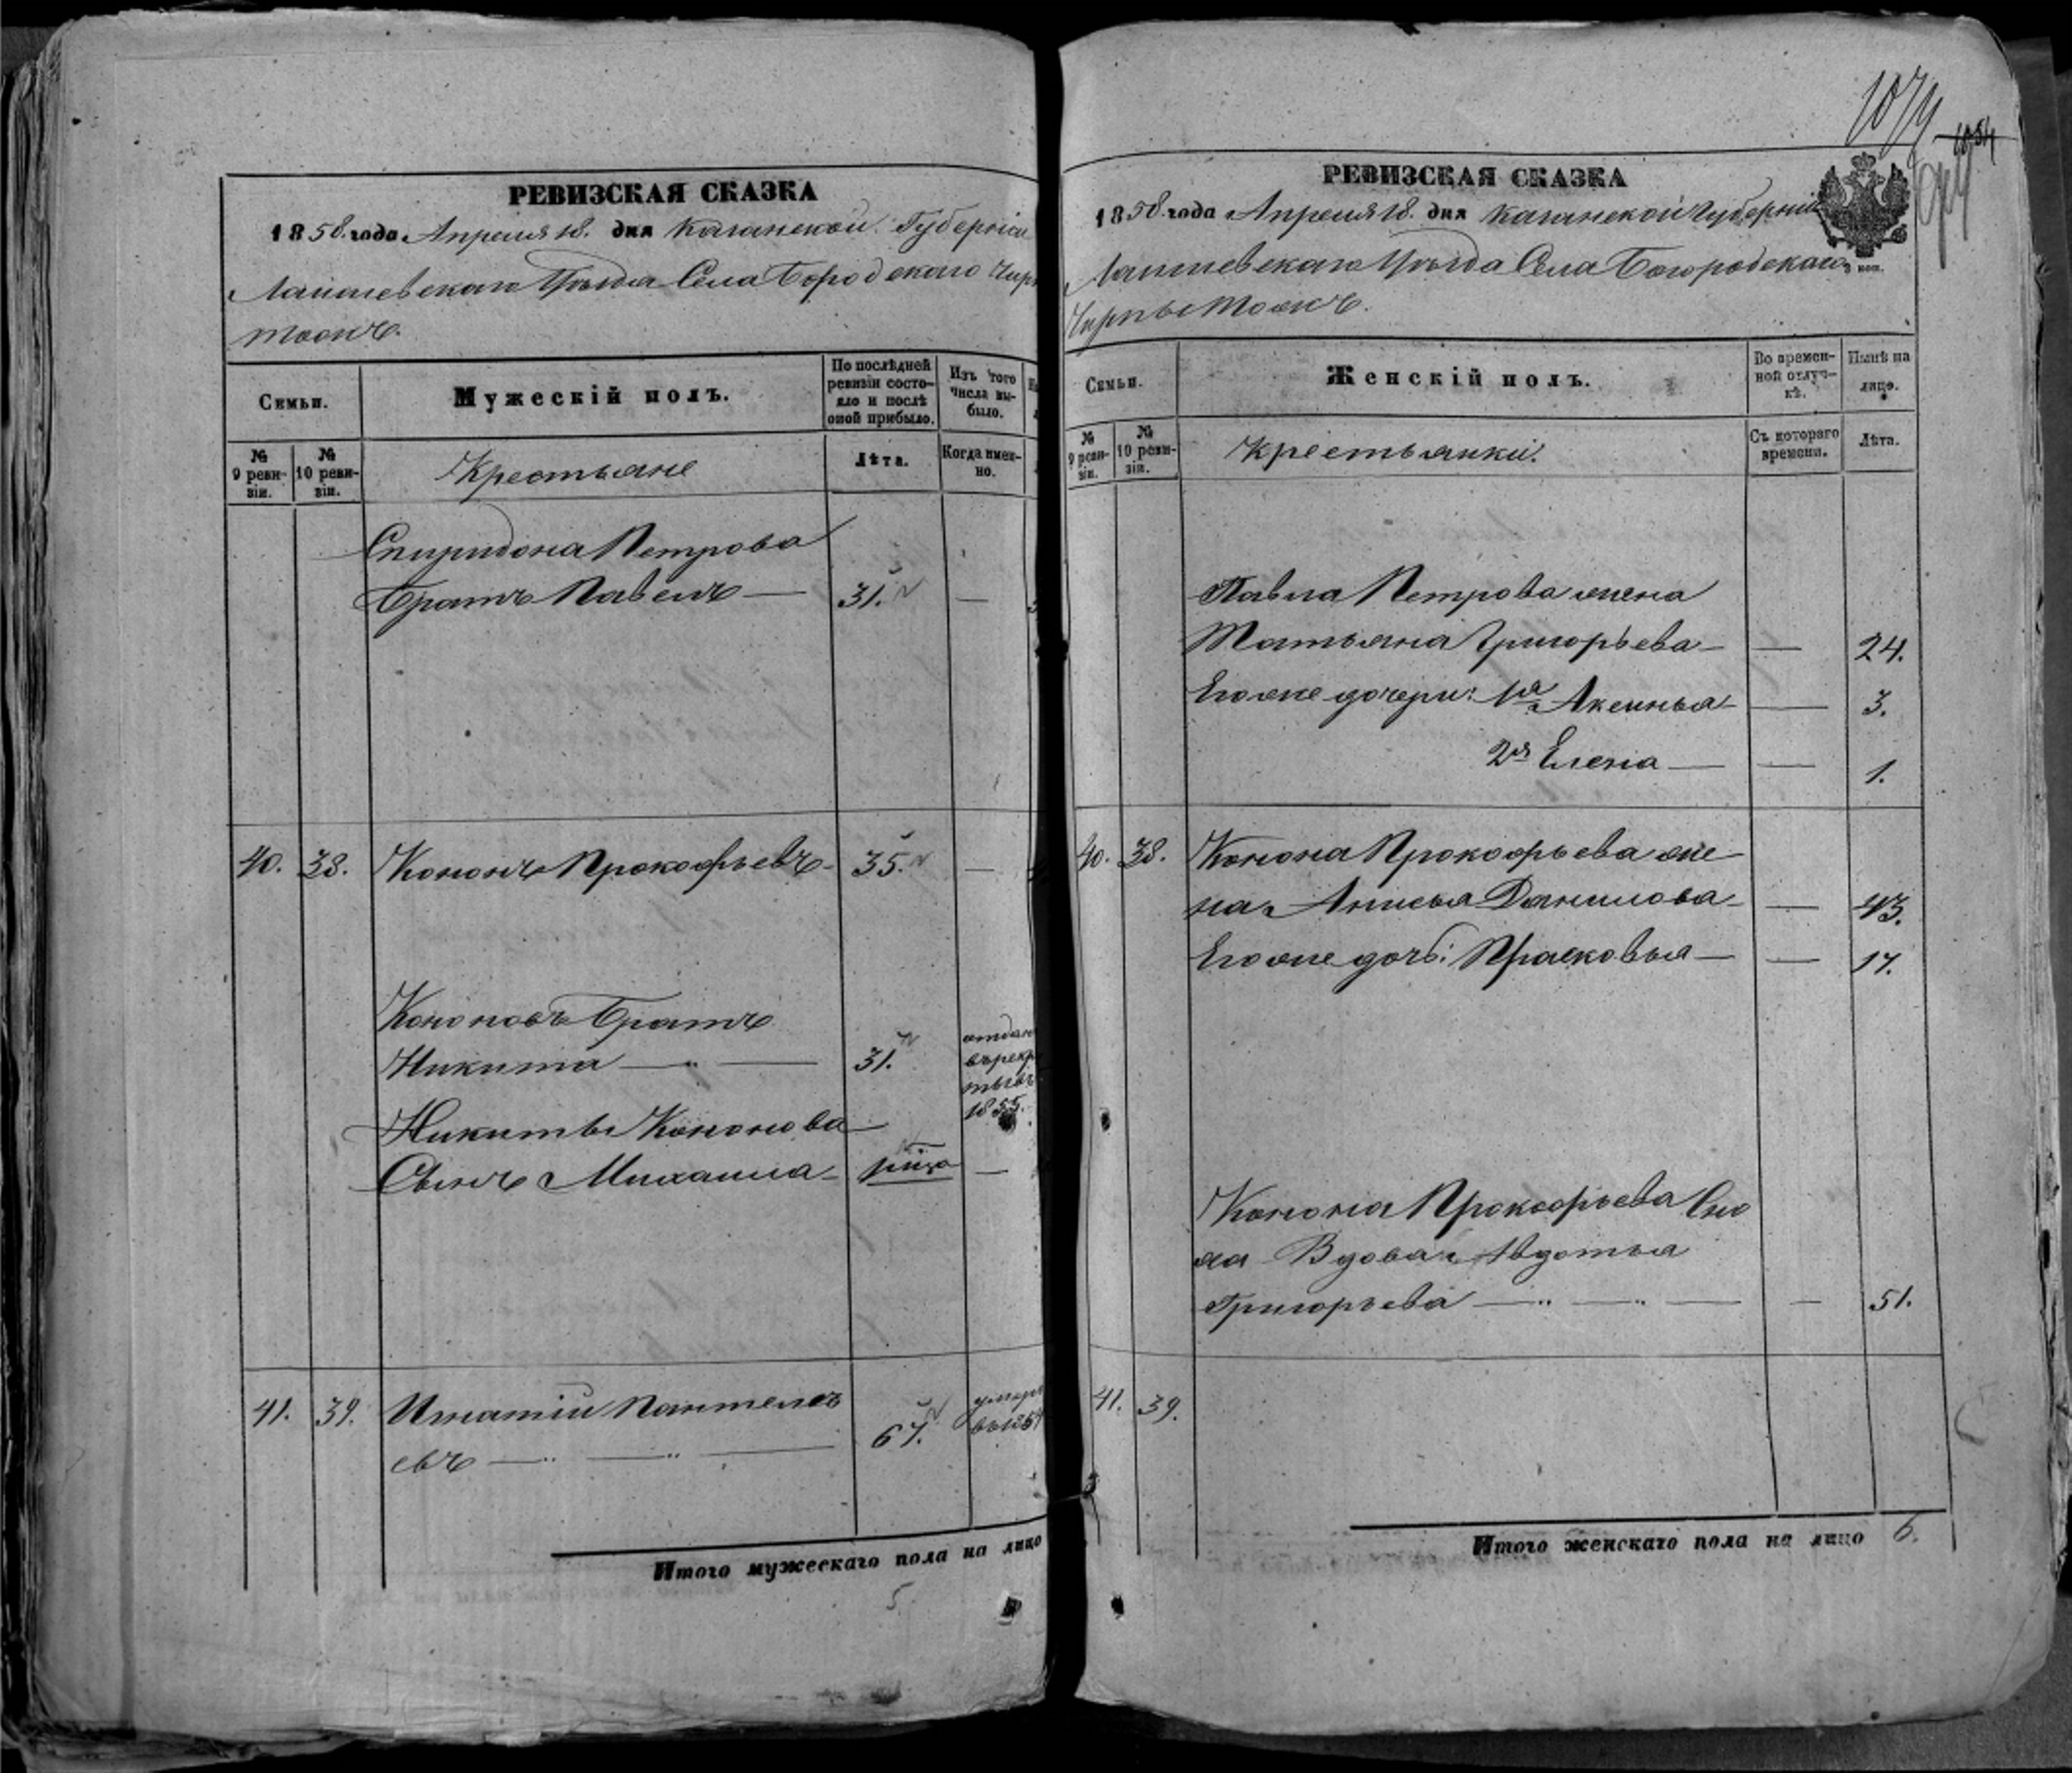 РЕВИЗСКАЯ СКАЗКА
1858. года Апреля 18. дня Казанской Губерніи
Лаишевскаго Уѣзда Села Бородскаго Чирп
тоскъ.
Семьи.
Мужескій полъ.
По послѣдней ревизіи состо-
яло и послѣ оной прибыло.
Изъ того числа вы-
было.
№ 9 реви-
зіи.
№ 10 реви-
зіи.
Крестьяне
Лѣта.
Когда имен-
но.
Спиридона Петрова
братъ Павелъ — 31. —
40. 38. Кононъ Прокофьевъ - 35. —
Кононовъ братъ
Никита — " — 31.
отдан
въ рекр
ты въ
1855.
Никиты Кононова
Сынъ Михаила -
—
41. 39. Игнатій Пантелее
евъ — " — " — 67.
умеръ
въ 185
Итого мужескаго пола на лицо
5.
1074
1054
РЕВИЗСКАЯ СКАЗКА
1858. года Апреля 18. дня Казанской Губерніи
Лаишевскаго Уѣзда Села Богородскаго
Чирпы тожъ.
Семьи.
Женскій полъ.
Во времен-
ной отлуч-
кѣ.
Нынѣ на
лицо.
№ 9 реви-
зіи.
№ 10 реви-
зіи.
Крестьянки.
Съ котораго
времени.
Лѣта.
Павла Петрова жена
Татьяна Григорьева — — 24.
Его же дочери: 1я Аксинья — — 3.
2я Елена — — 1.
40. 38. Конона Прокофьева же-
на Анисья Данилова — — 43.
Его же дочь: Прасковья — — 17.
Конона Прокофьева Сно
ха Вдова Авдотья
Григорьева — " — " — — 51.
41. 39.
Итого женскаго пола на лицо 6.